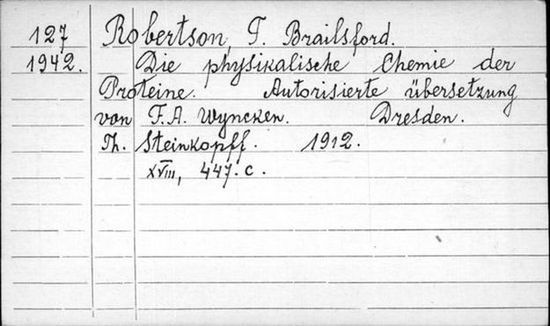 127 Robertson, T. Brailsford.
1942. Die physikalische Chemie der
Proteine. Autorisierte übersetzung
von F.A. Wyncken. Dresden.
Th. Steinkopff. 1912.
XVIII, 447. c.